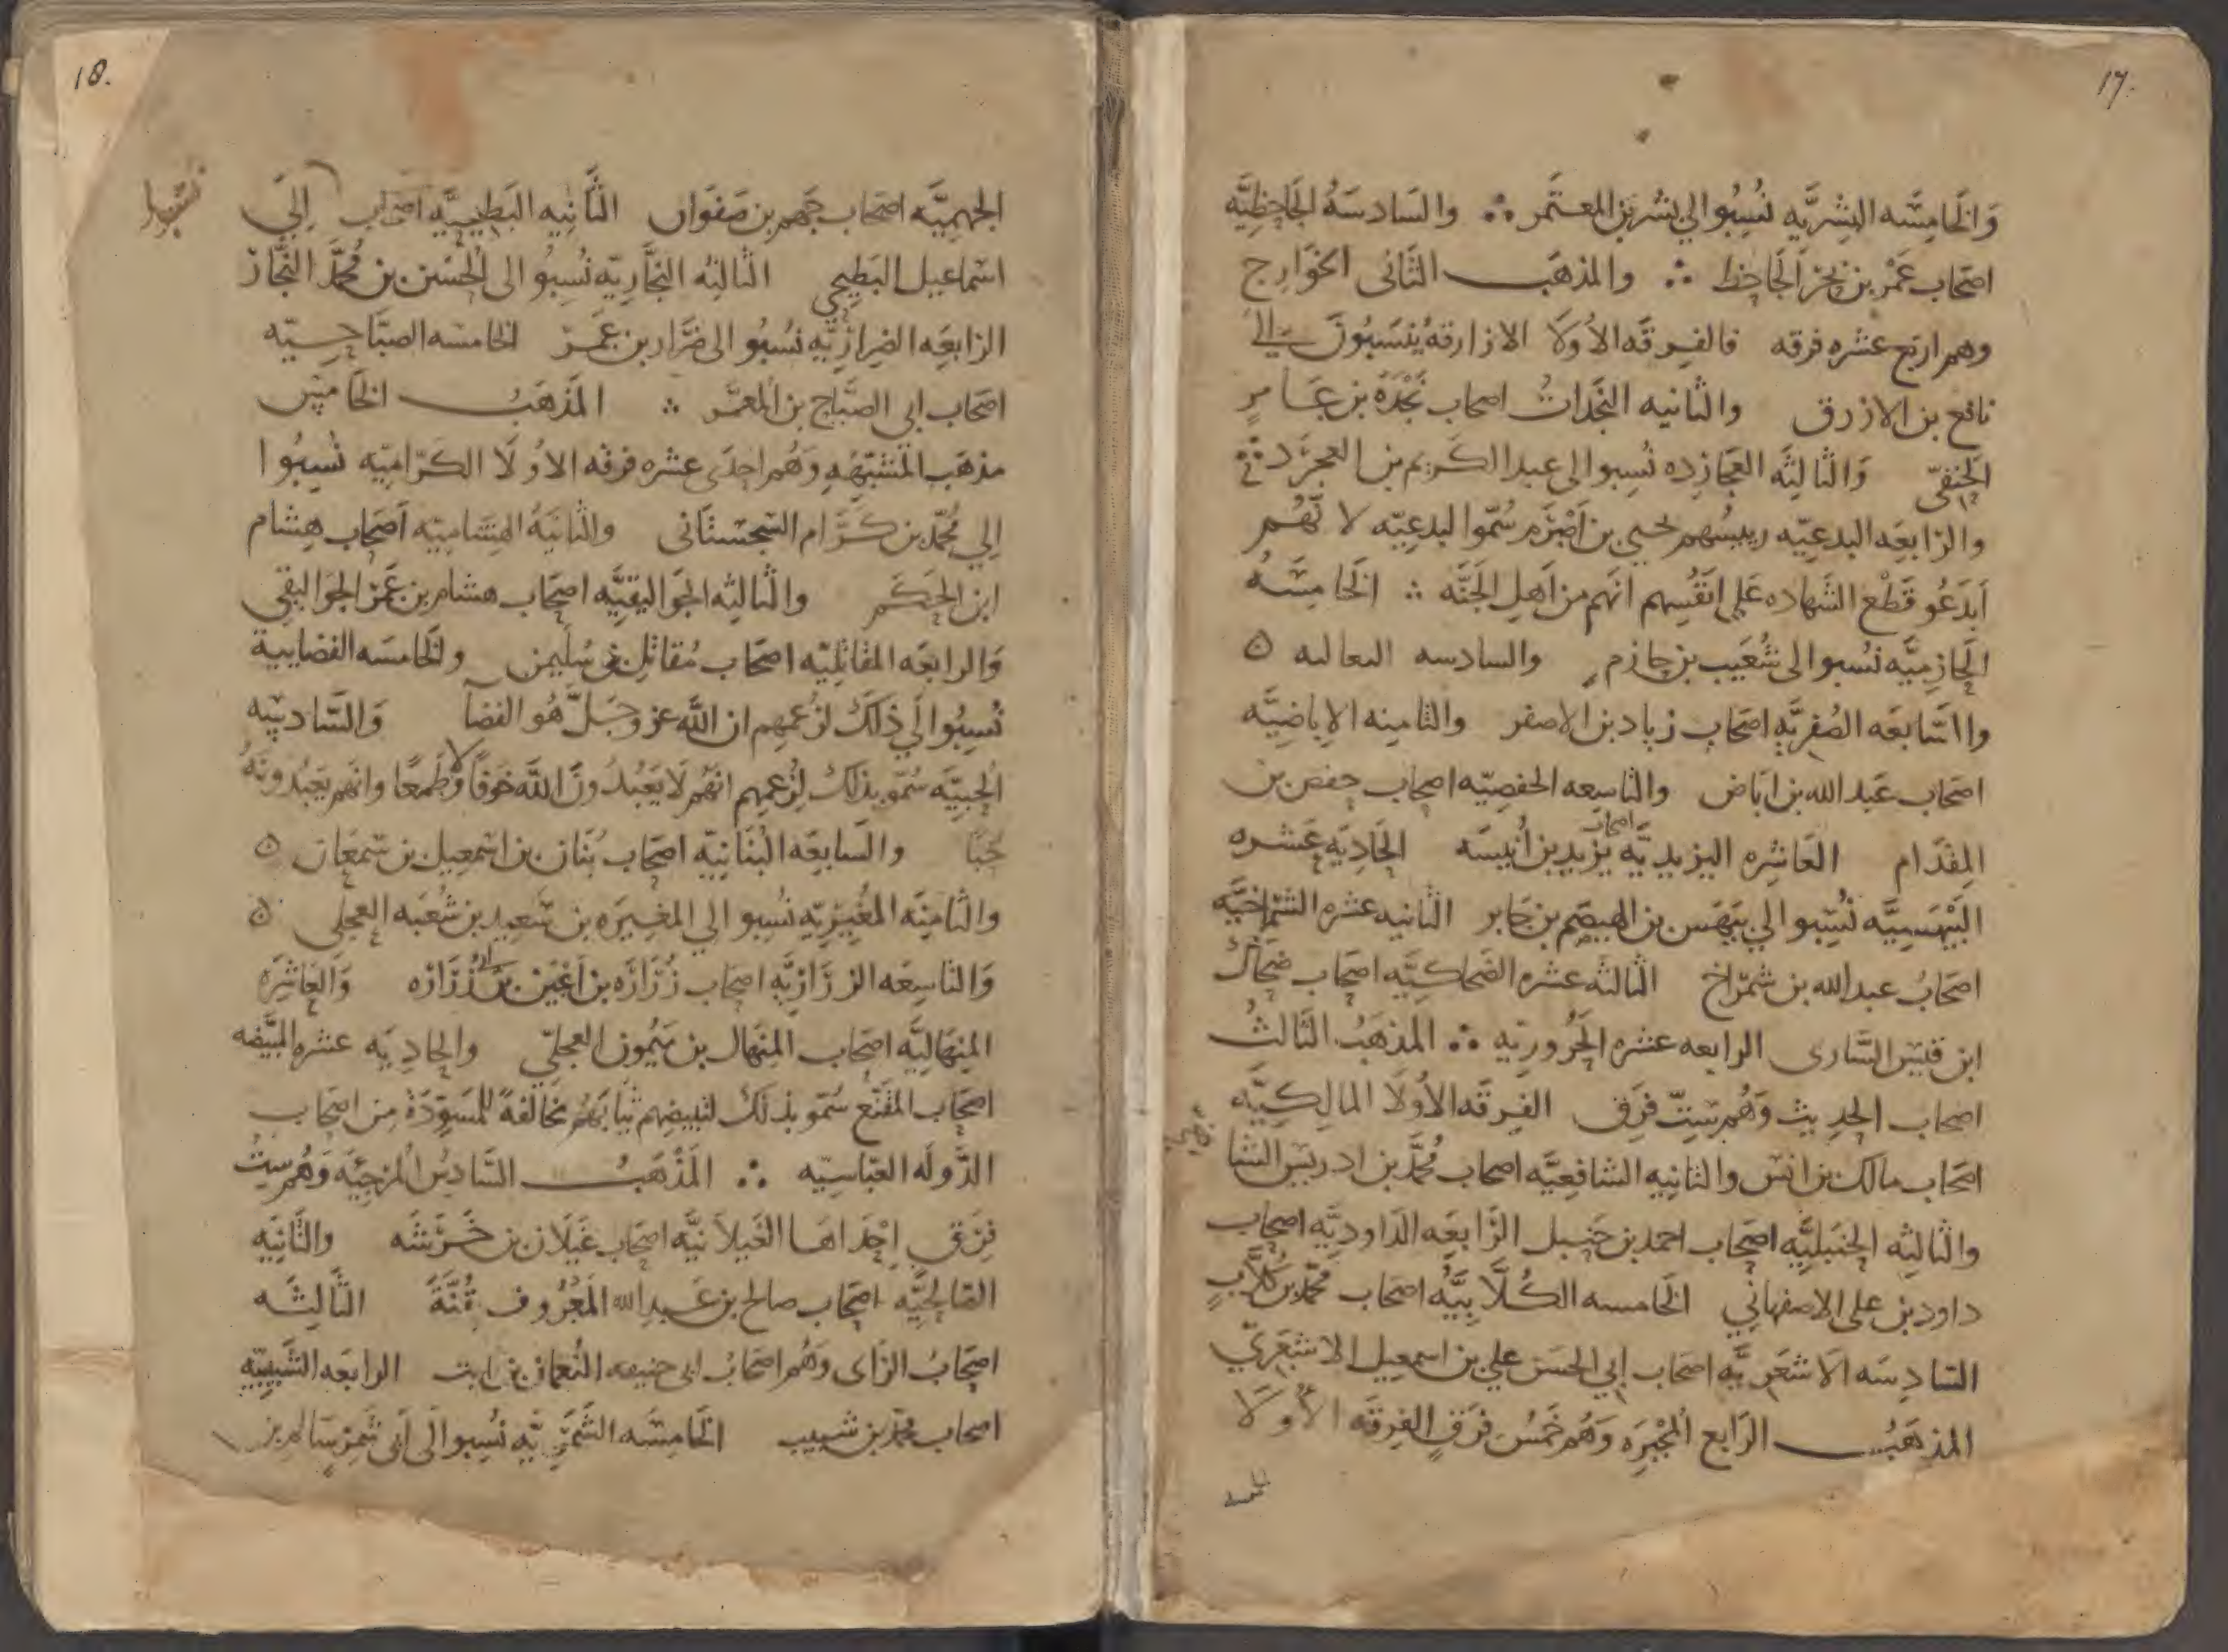 17.
وَالخَامِسَه البِشْريَّه نُسِبُوا الي بشر بن المعتَمر ؞ والسَادسَهُ الجَاحِظيَّه
اصحَاب عَمْر بن بحر الجَاحِظ ؞ والمذهَب الثَانى الخوَارِج
وهم اربَع عشره فرقه فالفِرقَه الأولَا الازارقَه يُنسَبُونَ الى
نافع بن الازرق والثانيه النجَدَاتُ اصحاب نَجْدَةَ بن عَامرٍ
الحَنفيّ وَالثالِثَه العجَارِده نُسِبوا الى عبد الكَريم بن العجرَّد ؞
والرَابعَه البدعِيّه رييسُهم يحيى بن اَصْرَم سُمّوا البدعِيّه لانَّهُم
اَبدَعُو قَطْع الشَهاده عَلي انفُسِهم انهَم من اَهلِ الجَنَّه ؞ الخَامِسَهُ
الحَازميَّه نسُبوا الى شُعَيب بن حازم والسادسه الثعالبه ه
والسَابعَه الصُفريَّه اصحَاب زياد بن الاصفر والثامِنه الاِباضِيَّه
اصحَاب عَبد الله بن ابَاض والتاسِعه الحفصِيّه اصحاب حفص بن
المِقدَام العَاشِره اليزيديَّه اصحَاب يَزيد بن اُنَيسَه الحَاديَه عَشره
البَيْهَسيَّه نُسِبُوا الي بَيهَس بن الهيصَم بن جَابر الثانيه عشره الشمراخيَّه
اصحَابُ عبد الله بن شمرَاخ الثالثه عشره الضَحاكيَّه اصحَاب ضحَاك
ابن قَيس الشَارى الرابعه عشره الحَرُوريّه ؞ المذهَبُ الثَالثُ
اصحاب الحدِيث وَهُم سِتّ فِرَق الفِرقَه الأولَا المالِكِيَّه
اصحَاب مالك بن انس والثانِيه الشافعِيَّه اصحاب مُحمَّد بن ادريس الشا
والثالِثه الحَنبَليَّه اصحَاب احمد بن حَنبل الرَابعَه الدَاوديَّه اصحاب
داود بن على الاصفهانيّ الخَامسه الكُلَّابِيَّه اصحَاب محمَّد بن كلَّابٍ
السَادِسَه الاَشعَريَّه اصحَاب ابي الحَسَن علي بن اسمعيل الاشعَريّ
المذهَبُ الرَابع المُجْبِرَه وَهُم خَمسُ فرَقٍ الفِرقَه الأولَا
18.
الجَهميَّه اصحاب جَهم بن صَفوَان الثَّانِيه البَطيحيَّه اصحَاب اِلَي
نسبوا
اسماعيل البَطيحي الثالثه النجَّاريّه نُسِبُوا الى الحُسَين بن مُحمَّد النجَّار
الرَابعَه الضِراريَّه نسُبُوا الى ضَرار بن عَمرو الخامسَه الصبَّاحِيّه
اصحَاب ابى الصبَّاح بن المعمَّر ؞ المَذهَبُ الخَامِس
مذهَب المُشبّهَه وَهُم احدَى عشره فرقه الاُولَا الكَرَّاميّه نُسِبُوا
الي مُحمَّد بن كَرَّام السِجسْتانى والثانيَهُ الهِشَاميّه اَصحَاب هِشام
ابن الحَكَم والثالِثه الجَوَاليقيَّه اصحَاب هشام بن عَمرو الجَوَاليقى
وَالرابعَه المقاتِليّه اصحَاب مُقاتل بن سُليمن والخَامسَه الفضاييه
نُسِبُوا الَي ذلكَ لزعمِهم ان الله عز وجَلَّ هُو الفضآ وَالسَّادسَه
الحُبيَّه سُمّو بذلكَ لِزعمِهم انهُم لَا يَعبُدُونَ اللَه خَوفًا ولا طَمَعًا وانهم يَعبُدونَهُ
حُبًّا والسَابعَه البُنَانيّه اصحَاب بُنَان بن اسمعيل بن سَمعَان ه
والثامنَه المُغيريّه نسُبوا الي المغيرَه بن سَعيد بن شُعبَه العِجلى ه
وَالتاسِعَه الزرَاريَّه اصحَاب زُرَارَه بن اَعيَن بن زُرَارَه وَالعَاشِرَه
المِنهَاليَّه اصحَاب المِنهَال بن مَيمُون العِجليّ والحَاديَه عشره المبيّضه
اصحَاب المقَنَّع سُمّو بذلكَ لتبييضهم ثيابَهُم مخالفةً للمسَوِّدَة مِن اصحَاب
الدَّولَه العبَّاسِيّه ؞ المَذْهَبُ السَّادِسُ المُرجِئَه وَهُم سِتُ
فِرَق اِحدَاهَا الغَيلَانيَّه اصحَاب غَيلَان بن خَرَشَه والثَانيَه
الصَالحِيَّه اصحَاب صالح بن عَبدالله المَعرُوف بقُبَّةَ الثَّالِثَه
اصحَابُ الرَاى وَهُم اصحَابُ ابى حنيفه النُعمان بن ثابت الرابعَه الشَبيبيّه
اصحَاب محمَّد بن شبيب الخَامِسَه الشَّمَّريَّه نُسِبوا الَى اَبى شمر سَالم بن